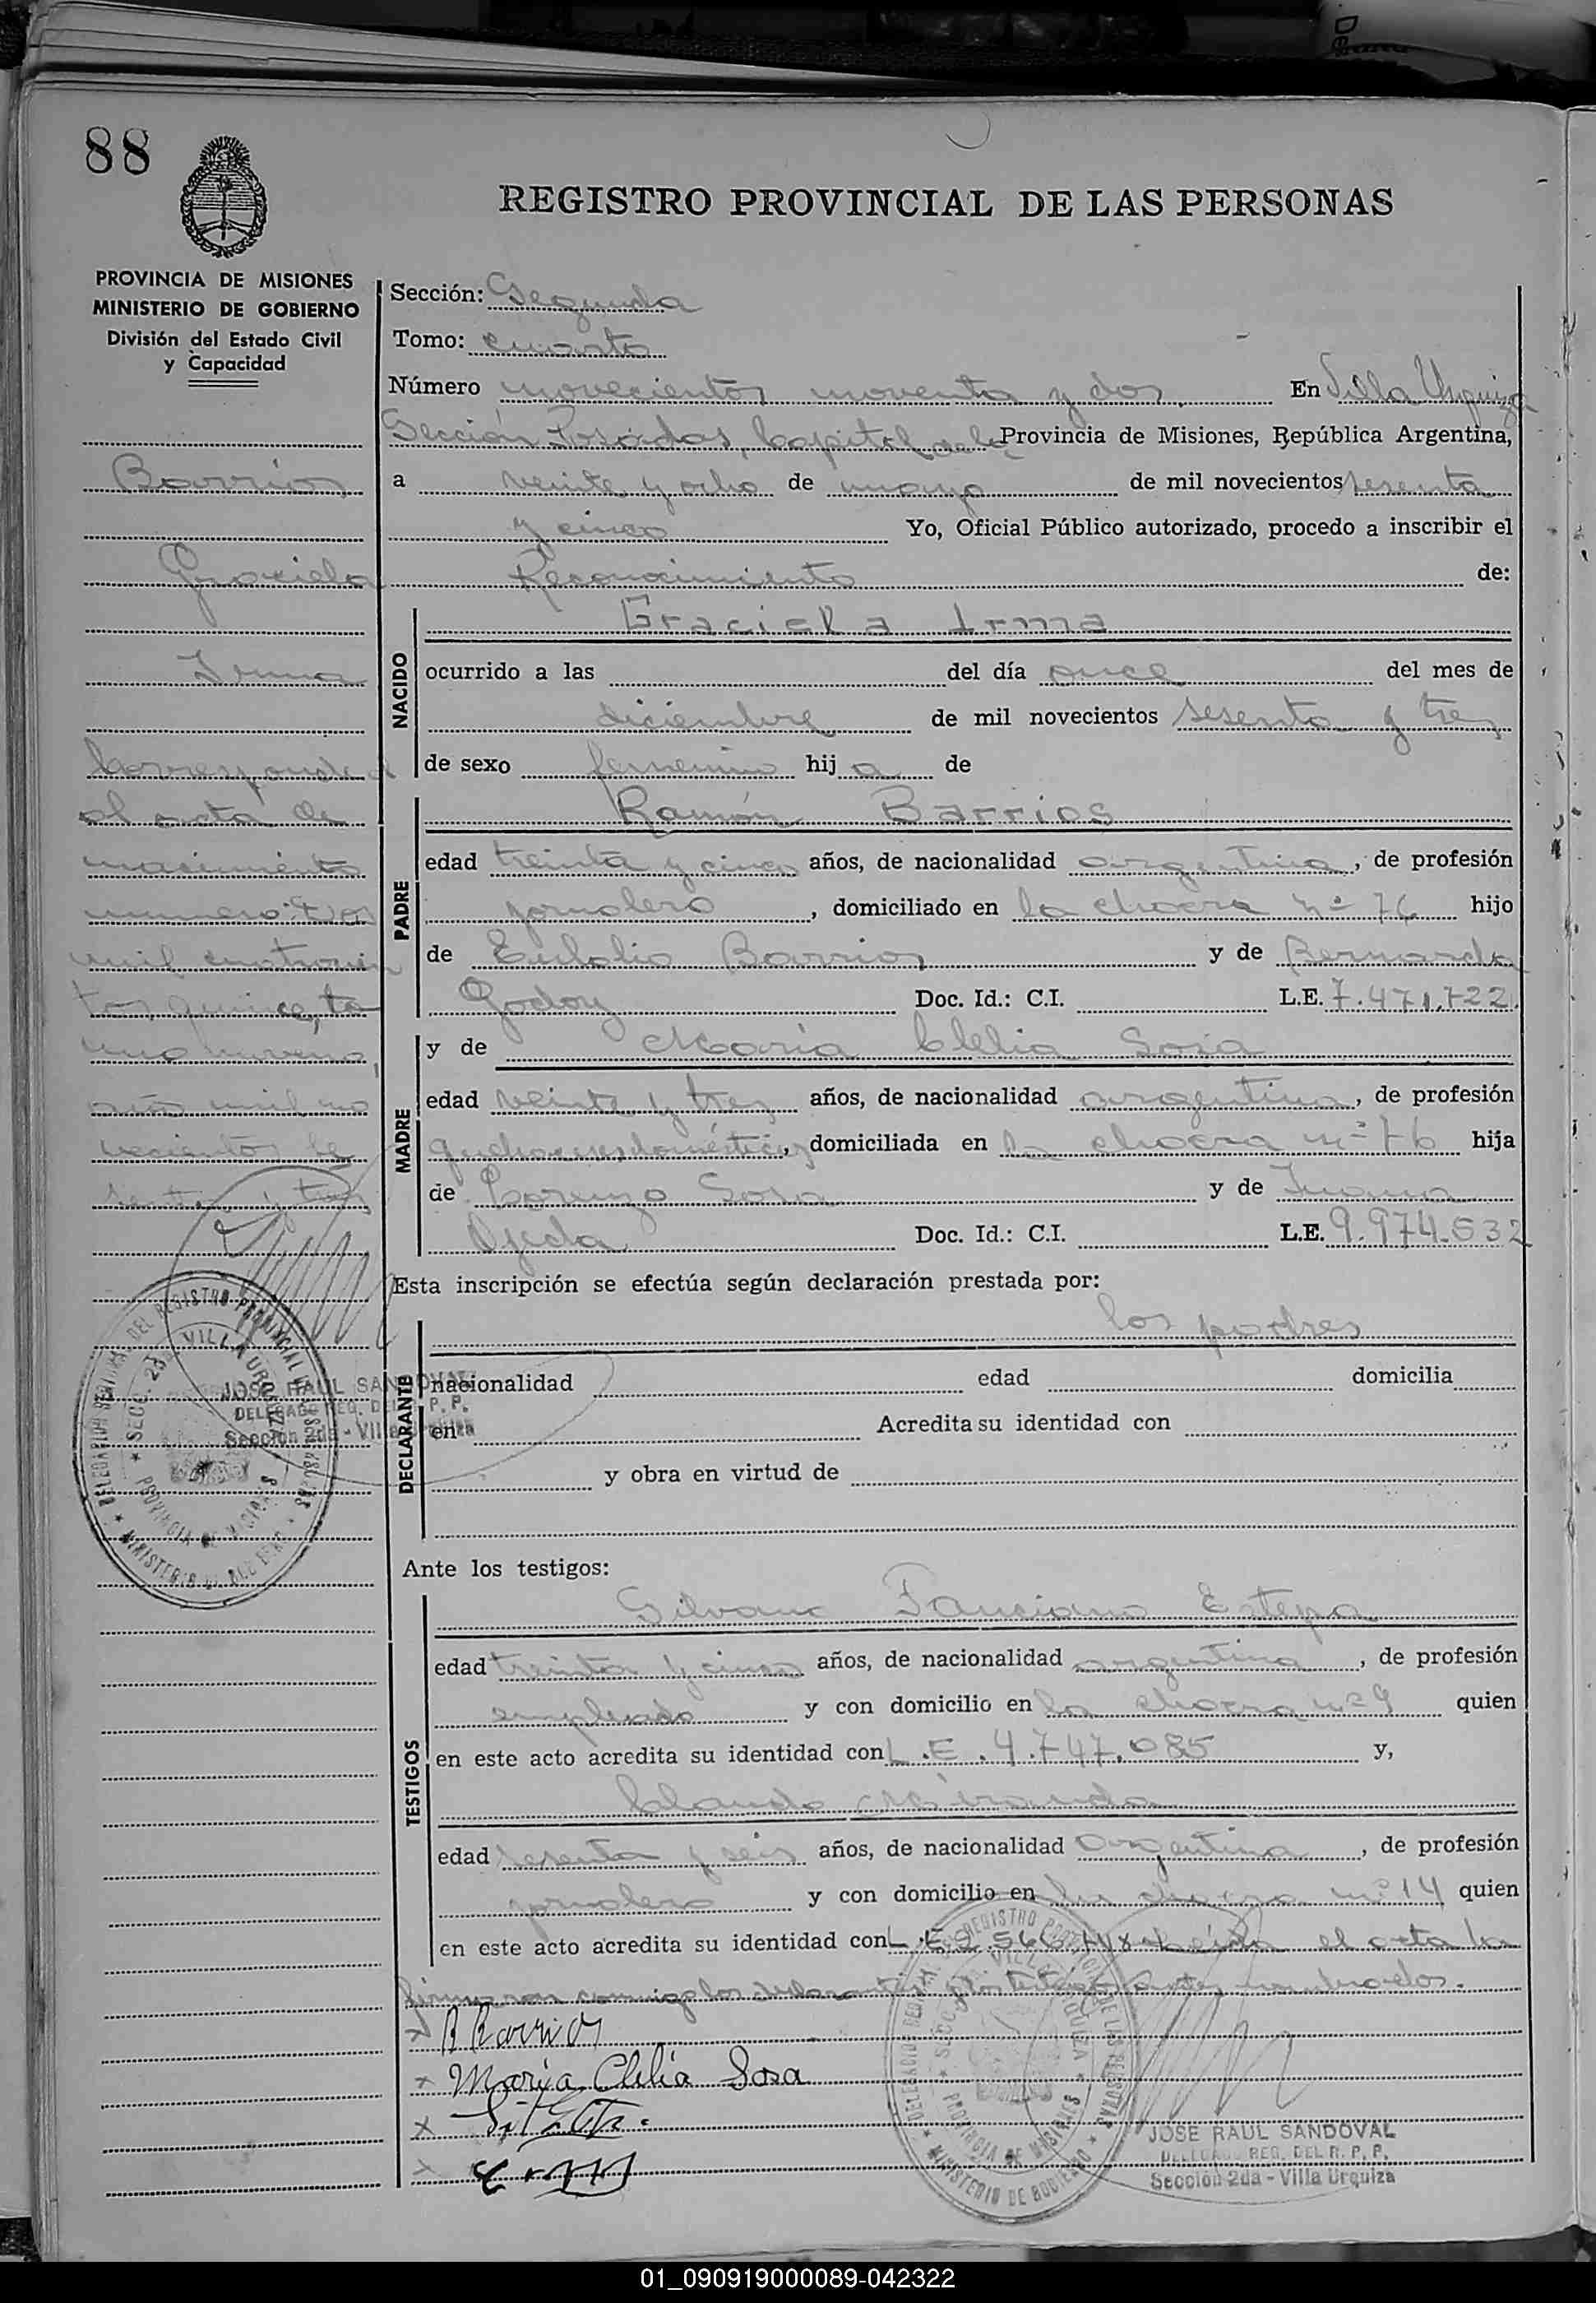 88
REGISTRO PROVINCIAL DE LAS PERSONAS
PROVINCIA DE MISIONES
MINISTERIO DE GOBIERNO
División del Estado Civil
y Capacidad
Barrios
Graciela
Irma
Corresponde
al acta de
nacimiento
numero: dos
mil cuatrocien
tos quince, to
mo noveno,
año mil no
vecientos se
senta y tres
Sección: Segunda
Tomo: cuarto
Número novecientos noventa y dos. En Villa Urquiza
Sección Posadas, Capital de la Provincia de Misiones, República Argentina,
a veinte y ocho de mayo de mil novecientos sesenta
y cinco Yo, Oficial Público autorizado, procedo a inscribir el
Reconocimiento de:
NACIDO
Graciela Irma
ocurrido a las del día once del mes de
diciembre de mil novecientos sesenta y tres
de sexo femenino hija de
PADRE
Ramón Barrios
edad treinta y cinco años, de nacionalidad argentina, de profesión
jornalero, domiciliado en la chacra nº 76 hijo
de Eulalio Barrios y de Bernarda
Godoy Doc. Id.: C.I. L.E. 7.471.722.
MADRE
y de María Clelia Sosa
edad veinte y tres años, de nacionalidad argentina, de profesión
quehaceres domésticos, domiciliada en la chacra nº 76 hija
de Lorenzo Sosa y de Juana
Ojeda Doc. Id.: C.I. L.E. 9.974.532
Esta inscripción se efectúa según declaración prestada por:
DECLARANTE
los padres
nacionalidad edad domicilia
en Acredita su identidad con
y obra en virtud de
JOSE RAUL SANDOVAL
DELEGADO REG. DEL R. P. P.
Sección 2da - Villa Urquiza
DELEGACION SECCIONAL DEL REGISTRO PROVINCIAL DE LAS PERSONAS
SECC. 2da VILLA URQUIZA
PROVINCIA DE MISIONES
MINISTERIO DE GOBIERNO
Ante los testigos:
TESTIGOS
Silvano Estepa
edad treinta y cinco años, de nacionalidad argentina, de profesión
empleado y con domicilio en la chacra nº 9 quien
en este acto acredita su identidad con L.E. 4.747.085 y,
Claudo Miranda
edad sesenta y seis años, de nacionalidad argentina, de profesión
jornalero y con domicilio en la chacra nº 14 quien
en este acto acredita su identidad con L.E. Leida el acta la
firmaron conmigo los declarantes y los testigos antes nombrados.
x R Barrios
x Maria Clelia Sosa
x
x
REGISTRO PROVINCIAL DE LAS PERSONAS
VILLA URQUIZA
PROVINCIA DE MISIONES
MINISTERIO DE GOBIERNO
JOSE RAUL SANDOVAL
DELEGADO REG. DEL R. P. P.
Sección 2da - Villa Urquiza
01_090919000089-042322